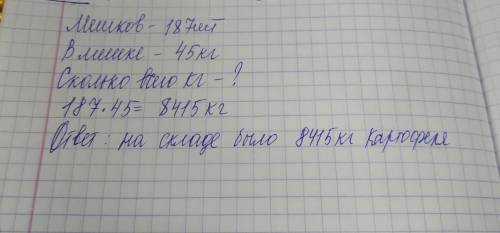 Мешков - 187шт
В мешке - 45кг
Сколько всего кг - ?
187·45= 8415кг
Ответ: на складе было 8415кг картофеля